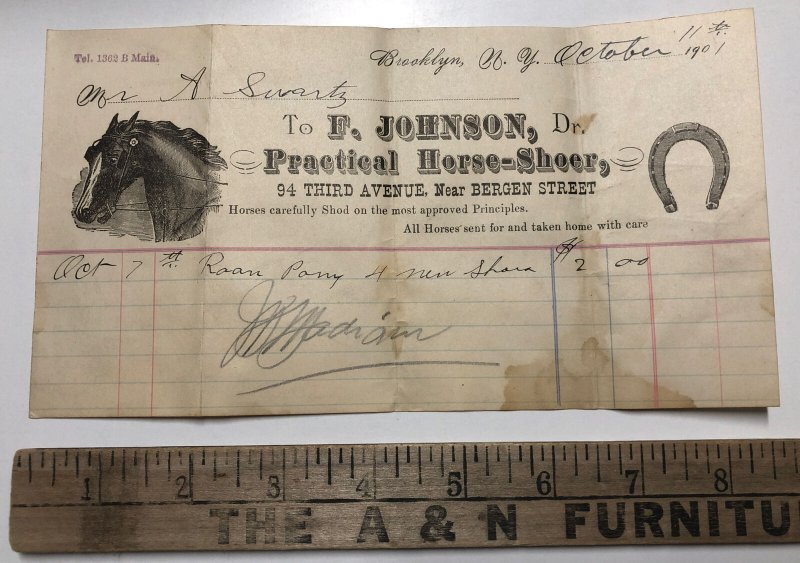 Tel. 1362 B Main.
Brooklyn, N. Y. October 11th 1901
Mr A Swartz
To F. JOHNSON, Dr.
Practical Horse-Shoer,
94 THIRD AVENUE, Near BERGEN STREET
Horses carefully Shod on the most approved Principles.
All Horses sent for and taken home with care
Oct 7th Roan Pony 4 new Shoes $2 00
1 2 3 4 5 6 7 8
THE A & N FURNITU